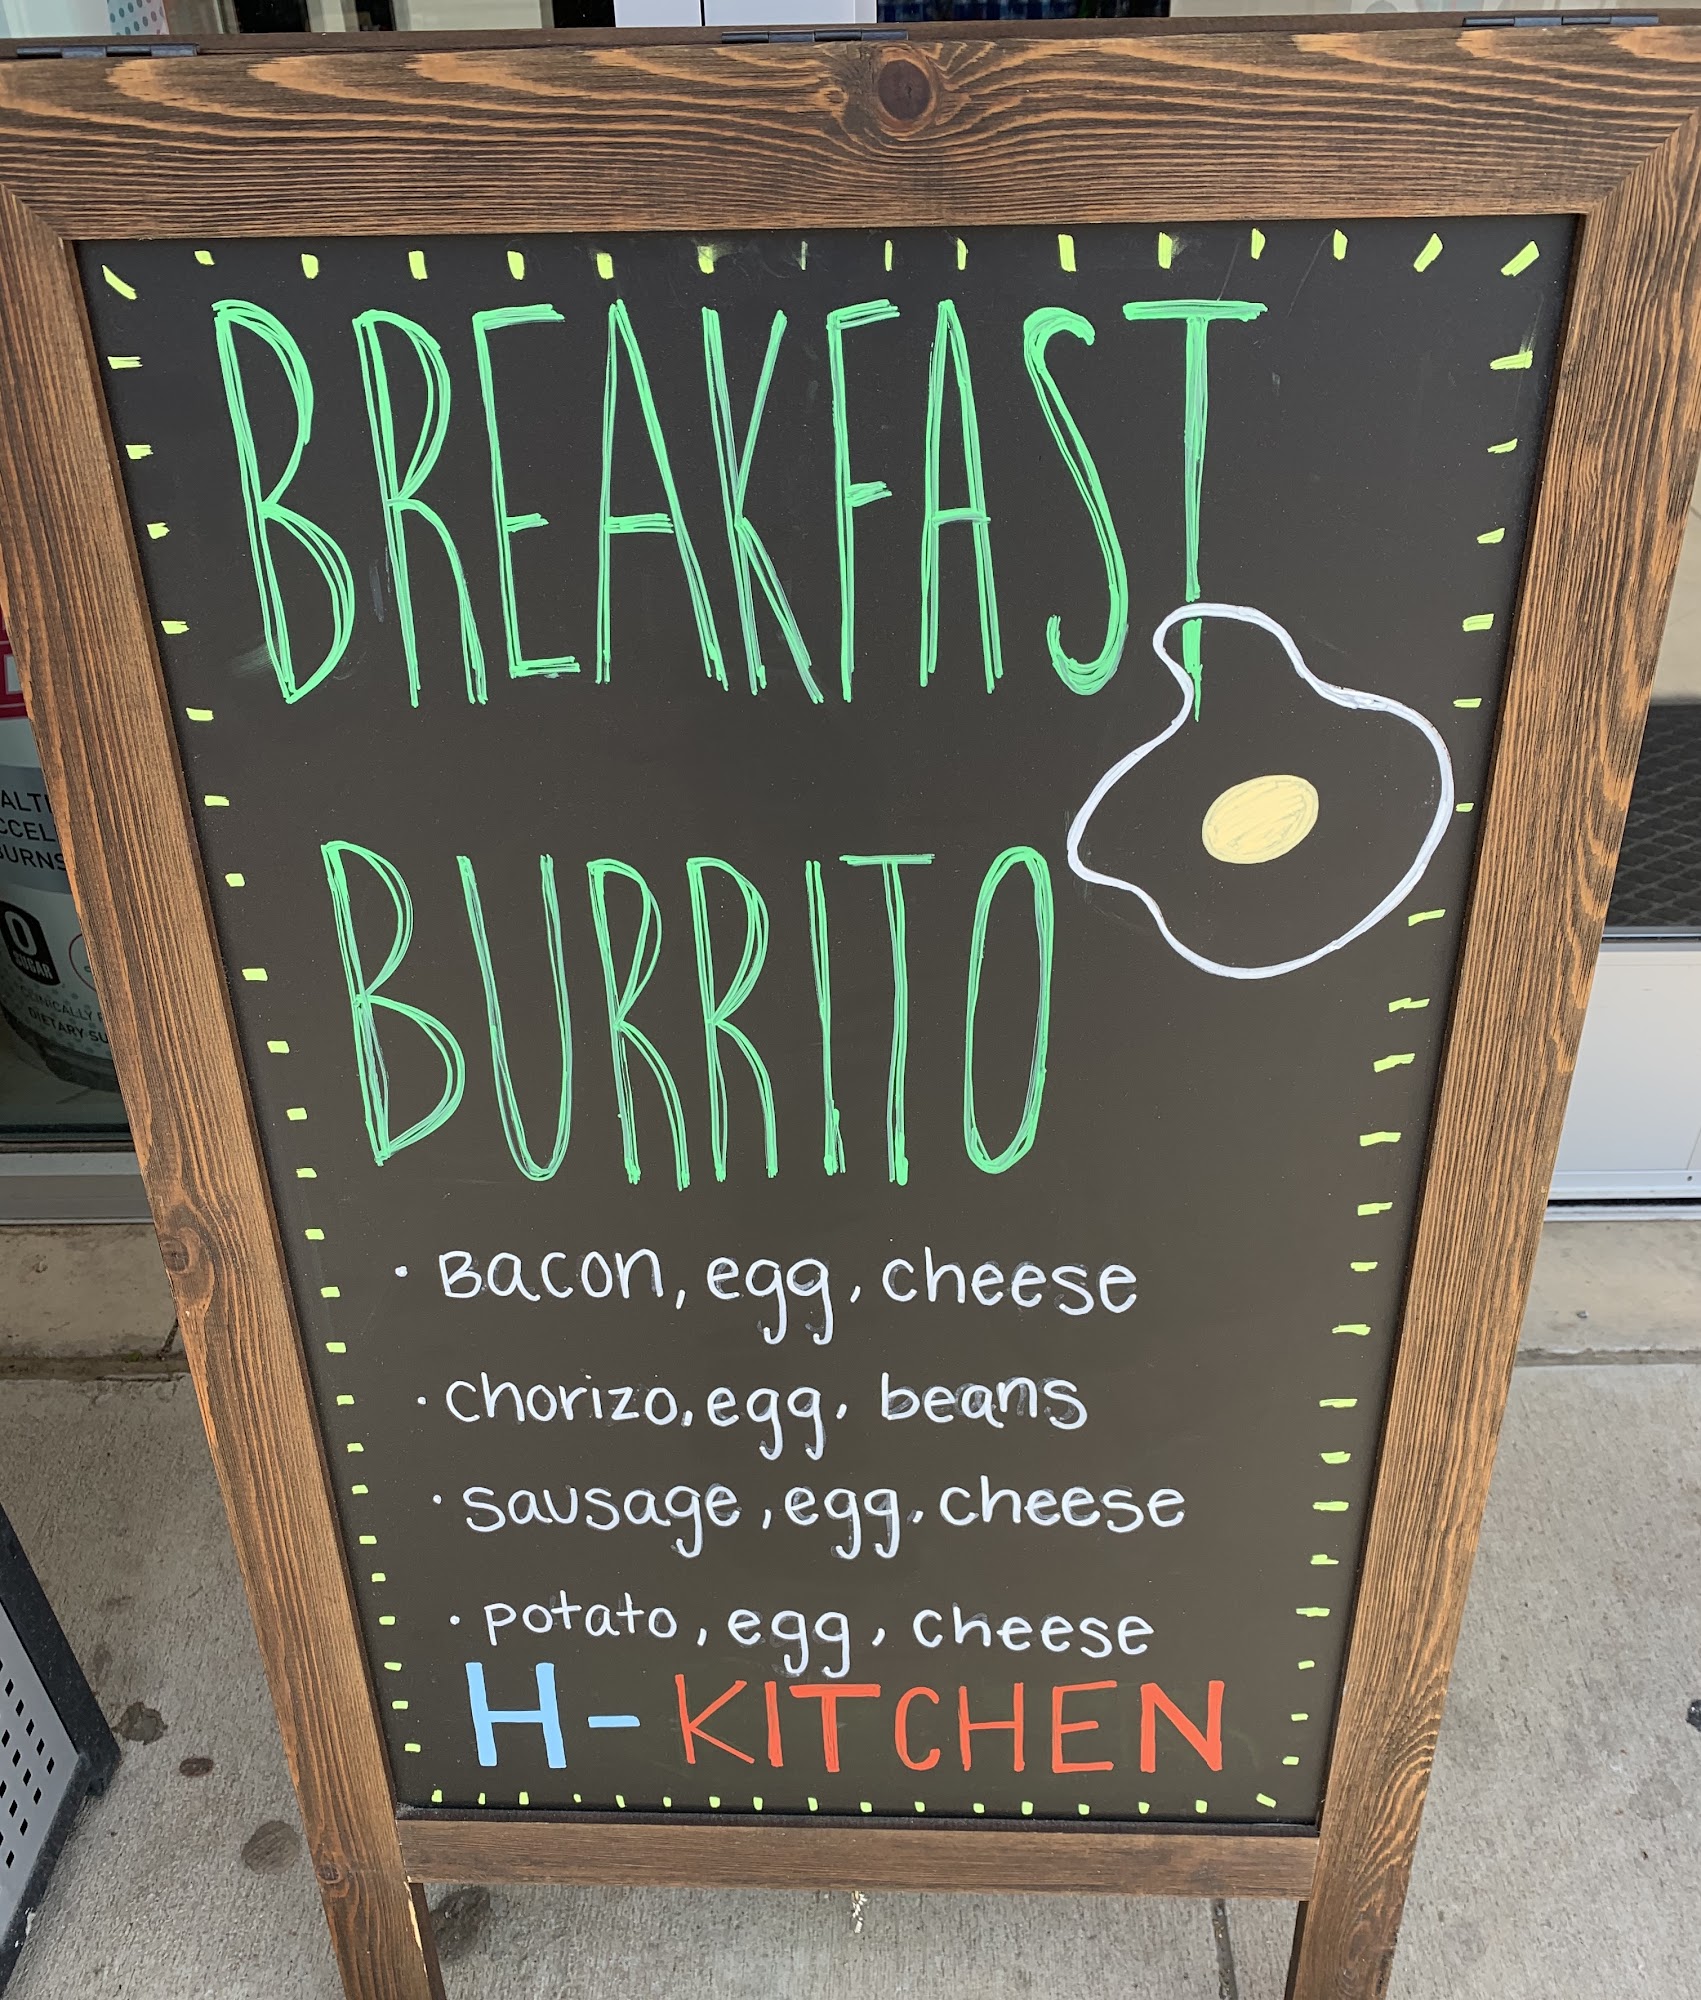 BREAKFAST
BURRITO
· Bacon, egg, cheese
· chorizo, egg, beans
· sausage, egg, cheese
· potato, egg, cheese
H-KITCHEN
0
SUGAR